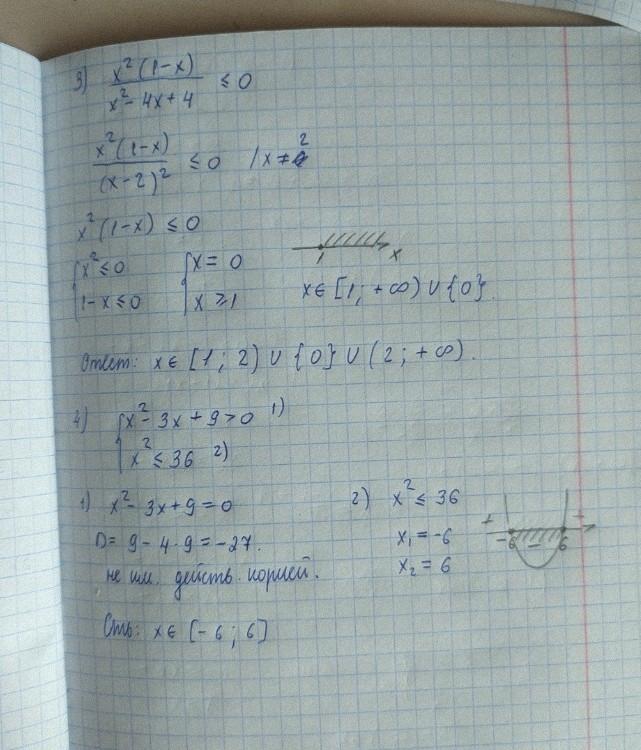 3) x²(1-x) / x²-4x+4 ≤ 0
x²(1-x) / (x-2)² ≤ 0 / x ≠ 2
x²(1-x) ≤ 0
{ x² ≤ 0 { x = 0
1-x ≤ 0 x ≥ 1
1 x
x ∈ [1; +∞) ∪ {0}
Ответ: x ∈ [1; 2) ∪ {0} ∪ (2; +∞).
4) { x² - 3x + 9 > 0 1)
x² ≤ 36 2)
1) x² - 3x + 9 = 0
D = 9 - 4·9 = -27.
не им. действ. корней.
2) x² ≤ 36
x₁ = -6
x₂ = 6
+ - +
-6 6
Отв: x ∈ [-6; 6]